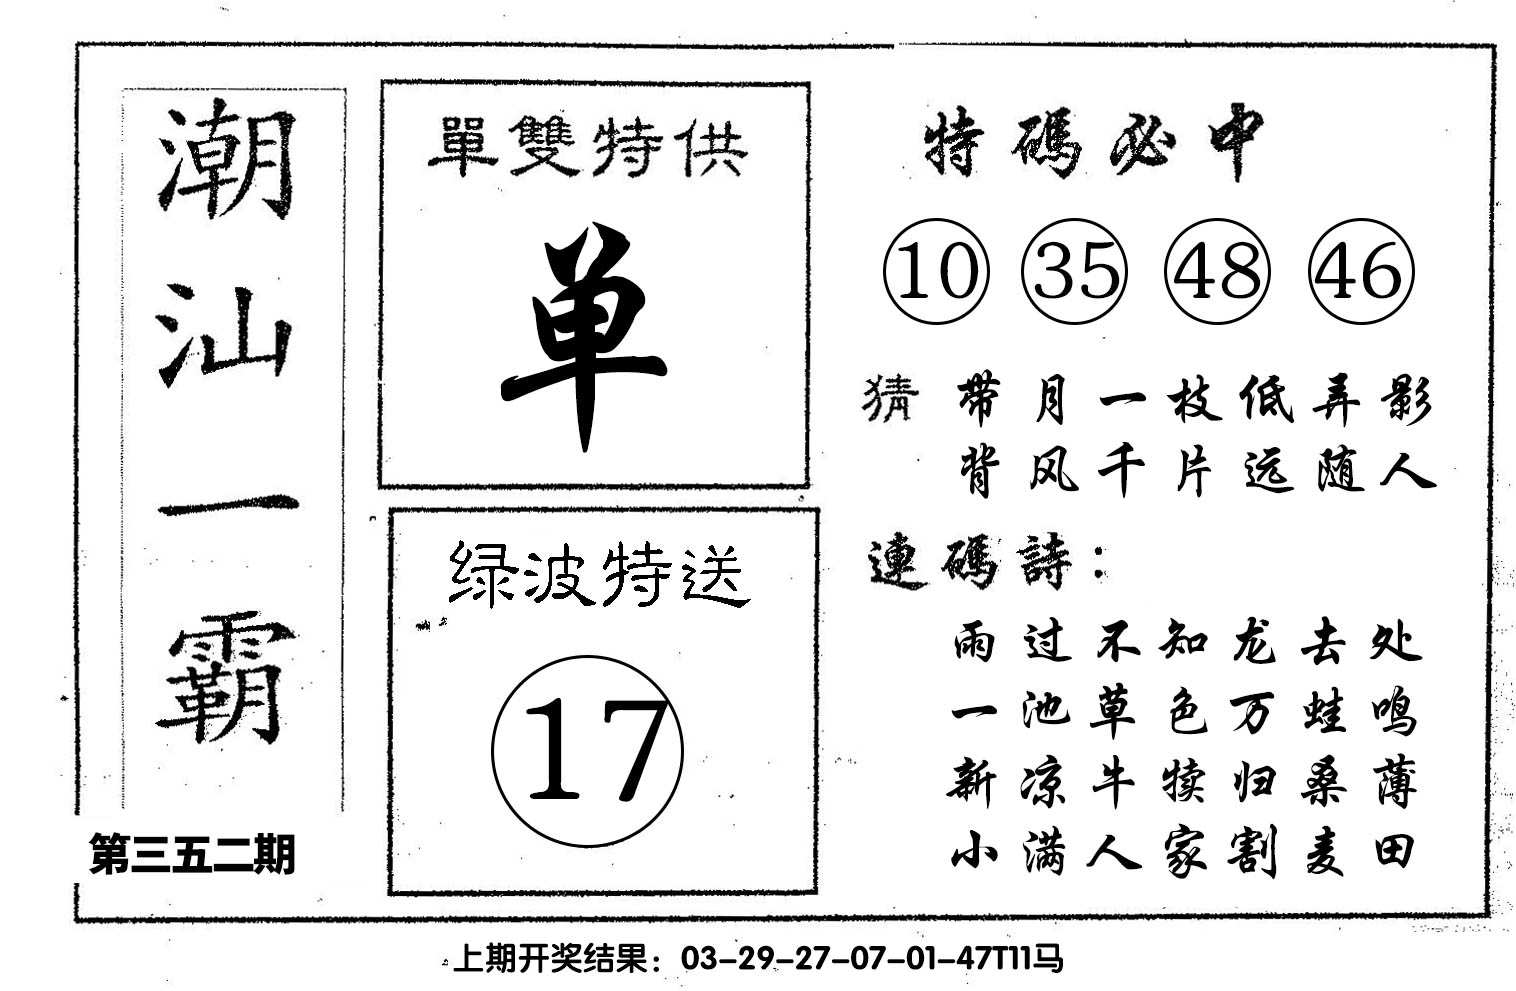 潮汕一霸
第三五二期
單雙特供
单
绿波特送
17
特碼必中
10 35 48 46
猜 带月一枝低弄影
背风千片远随人
連碼詩：
雨过不知龙去处
一池草色万蛙鸣
新凉牛犊归桑薄
小满人家割麦田
上期开奖结果：03-29-27-07-01-47T11马